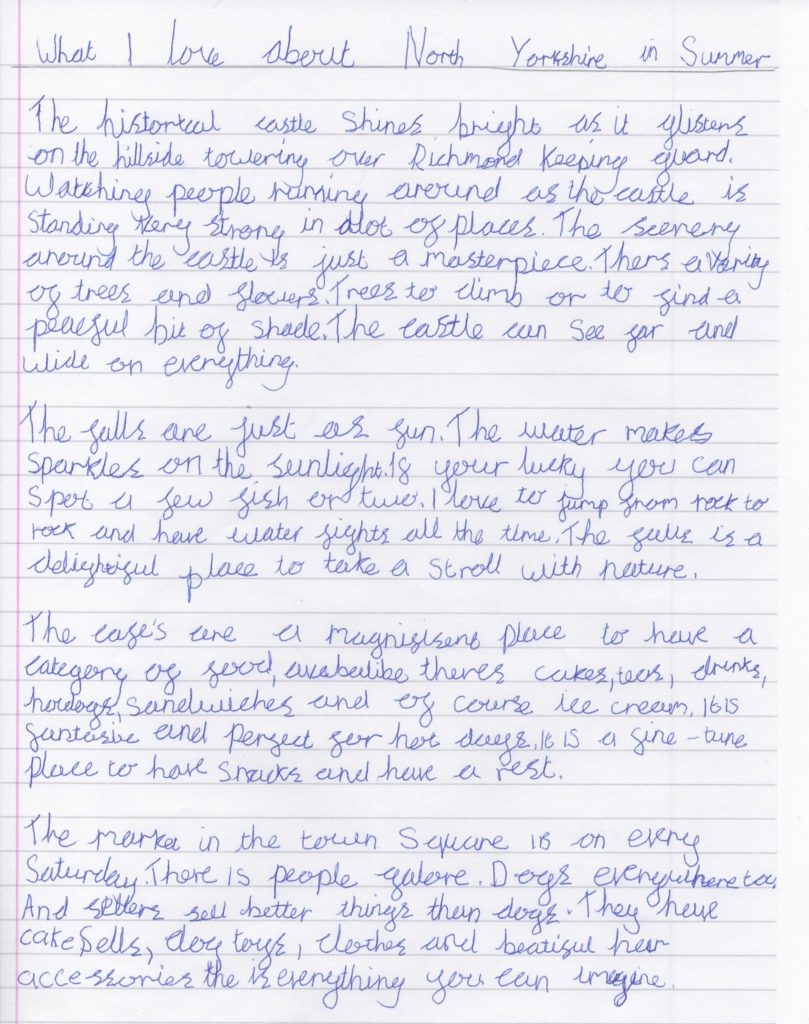 What I love about North Yorkshire in Summer
The historical castle shines bright as it glistens
on the hillside towering over Richmond keeping guard.
Watching people running around as the castle is
standing very strong in alot of places. The scenery
around the castle is just a masterpiece. Thers a
of trees and flowers. Trees to climb or to find a
peacful bit of shade. The castle can see far and
wide on everything.
The falls are just as fun. The water makes
sparkles on the sunlight. If your lucky you can
spot a few fish or two. I love to jump from rock to
rock and have water fights all the time. The falls is a
place to take a stroll with nature.
The cafe's are a magnifisens place to have a
category of food, theres cakes, teas, drinks,
hotdogs, sandwiches and of course ice cream. It is
fantasic and perfect for hot days. It is a fine-tune
place to have snacks and have a rest.
The market in the town square is on every
Saturday. There is people galore. Dogs everywhere too.
And sellers sell better things than dogs. They have
cake sells, dog toys, clothes and beatiful hair
accessories the is everything you can imagine.